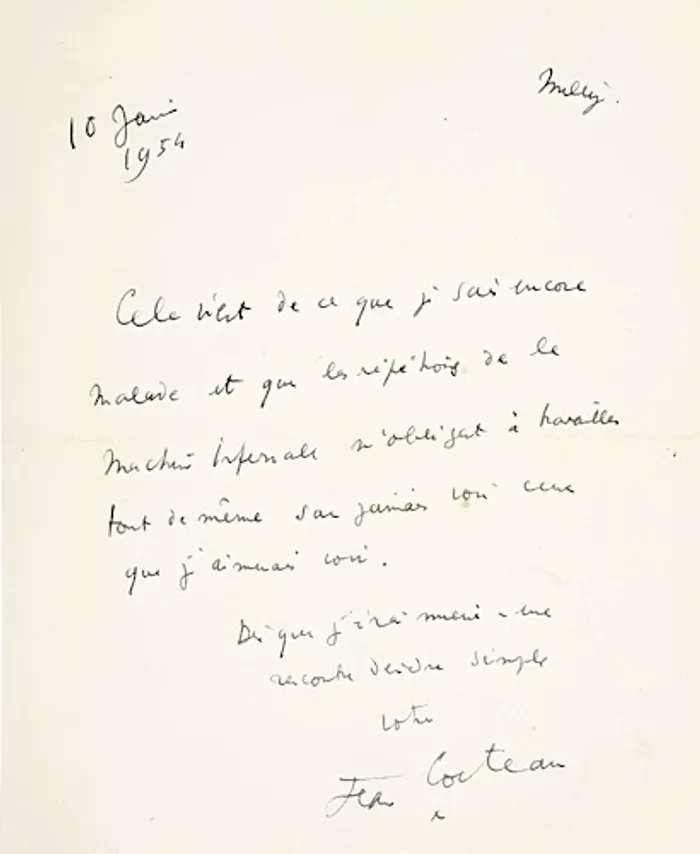 Milly.
10 Janv
1954
Cela vient de ce que je suis encore
malade et que les répétitions de la
Machine Infernale m'obligent à travailler
tout de même sans jamais voir ceux
que j'aimerais voir.
Dès que j'irai mieux - une
rencontre deviendra simple
votre
Jean Cocteau